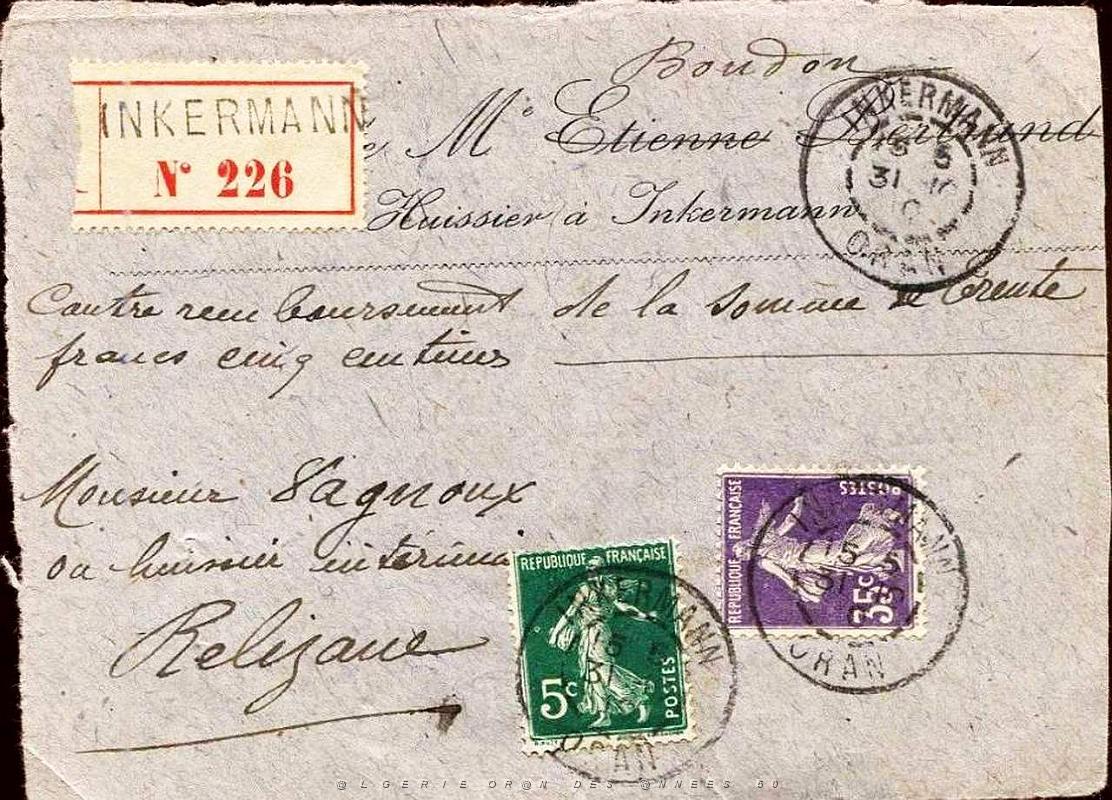 Boudon
INKERMANN
Nº 226
Mᵉ Etienne
Huissier à Inkermann
INKERMANN
31
ORAN
Contre remboursement de la somme de trente
francs cinq centimes
Monsieur Vagnoux
ou huissier intérimai
Relizane
REPUBLIQUE FRANÇAISE
POSTES
35c
INKERMANN
15 5
31
ORAN
REPUBLIQUE FRANÇAISE
5c
POSTES
INKERMANN
15 5
31
ORAN
@LGERIE OR@N DES @NNEES 50